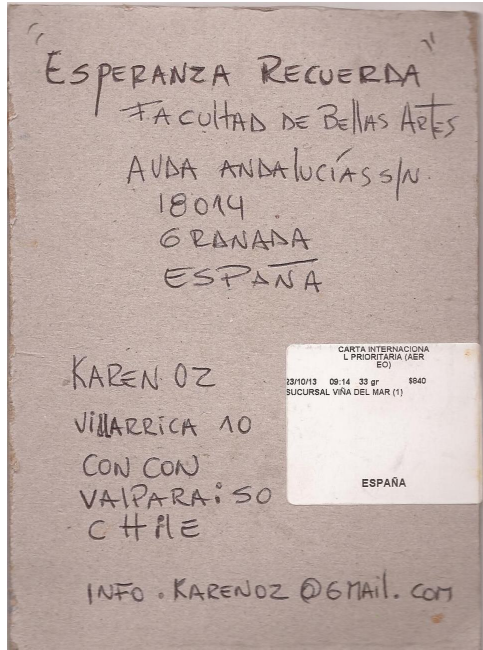 "ESPERANZA RECUERDA"
FACULTAD DE BELLAS ARTES
AVDA ANDALUCÍA S S/N.
18014
GRANADA
ESPAÑA
KAREN OZ
VILLARRICA 10
CON CON
VALPARAISO
CHILE
INFO.KARENOZ@GMAIL.COM
CARTA INTERNACIONA
L PRIORITARIA (AER
EO)
23/10/13 09:14 33 gr $840
SUCURSAL VIÑA DEL MAR (1)
ESPAÑA